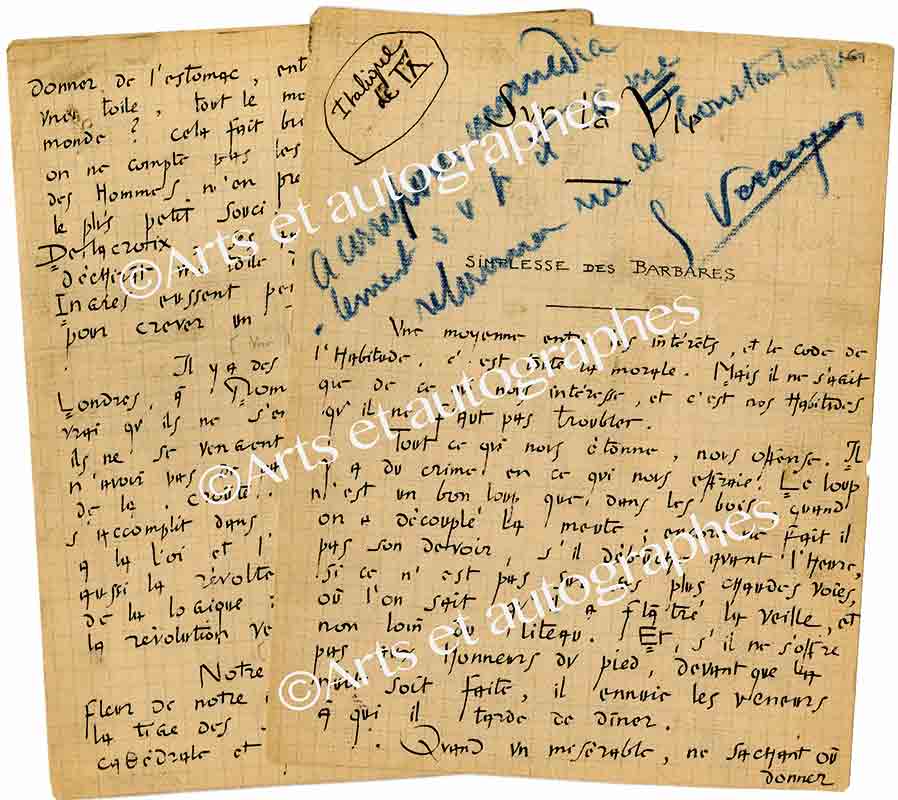 donner de l'estomac, ent
une toile, tout le mo
monde ? Cela fait bi
on ne compte pas les
des Hommes n'en pre
le plus petit souci
Delacroix
déchiré une toile
Ingres eussent pe
pour crever un
Il y a des
Londres, à Rom
vrai qu'ils ne s'e
ils ne se vengent
n'avoir pas de pa
de la croûte.
s'accomplit dans
à la loi et l'
aussi la révolte
de la logique :
la révolution ve
Notre
fleur de notre
la tige des
cathédrale et
Italique
de IX
69
Sur la Vie
a composer
s v p
retourner rue de Constantinople
SIMPLESSE DES BARBARES
Une moyenne entre les intérêts, et le code de
l'Habitude, c'est toute la morale. Mais il ne s'agit
que de ce qui nous intéresse, et c'est nos Habitudes
qu'il ne faut pas troubler.
Tout ce qui nous étonne, nous offense. Il
y a du crime en ce qui nous effraie. Le loup
n'est un bon loup que dans les bois, quand
on a découplé la meute ; encore ne fait il
pas son devoir, s'il débuche avant l'Heure,
si ce n'est pas sur ses plus chaudes voies,
où l'on sait qu'il a flâtré la veille, et
non loin du liteau. Et, s'il ne s'offre
pas aux Honneurs du pied, devant que la
nuit soit faite, il ennuie les veneurs
à qui il tarde de dîner.
Quand un misérable, ne sachant où
donner
©Arts et autographes
©Arts et autographes
©Arts et autographes
©Arts et autographes